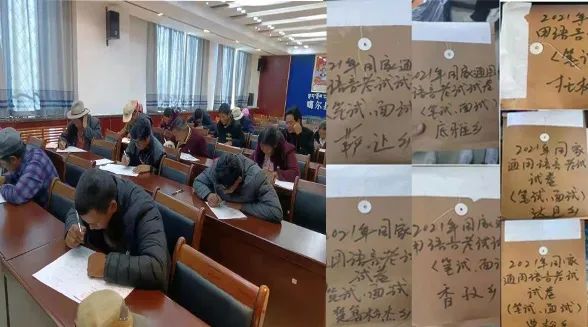 噶尔
21年国家通
语言考试试
笔试、面试
萨让乡
021年国家通用
语言考试试卷
(笔试、面试)
底雅乡
2021年
用语言
(笔试
托林
2021年国家
通用语言考试
试卷
(笔试、面试)
达巴乡
021年国家
用语言考试
试卷
笔试、面试
楚鲁松杰乡
2021年国家通
用语言考试试
(笔试、面试
香孜乡
2021年国家
通用语言考试
试卷
(笔试、面试)
曲松乡